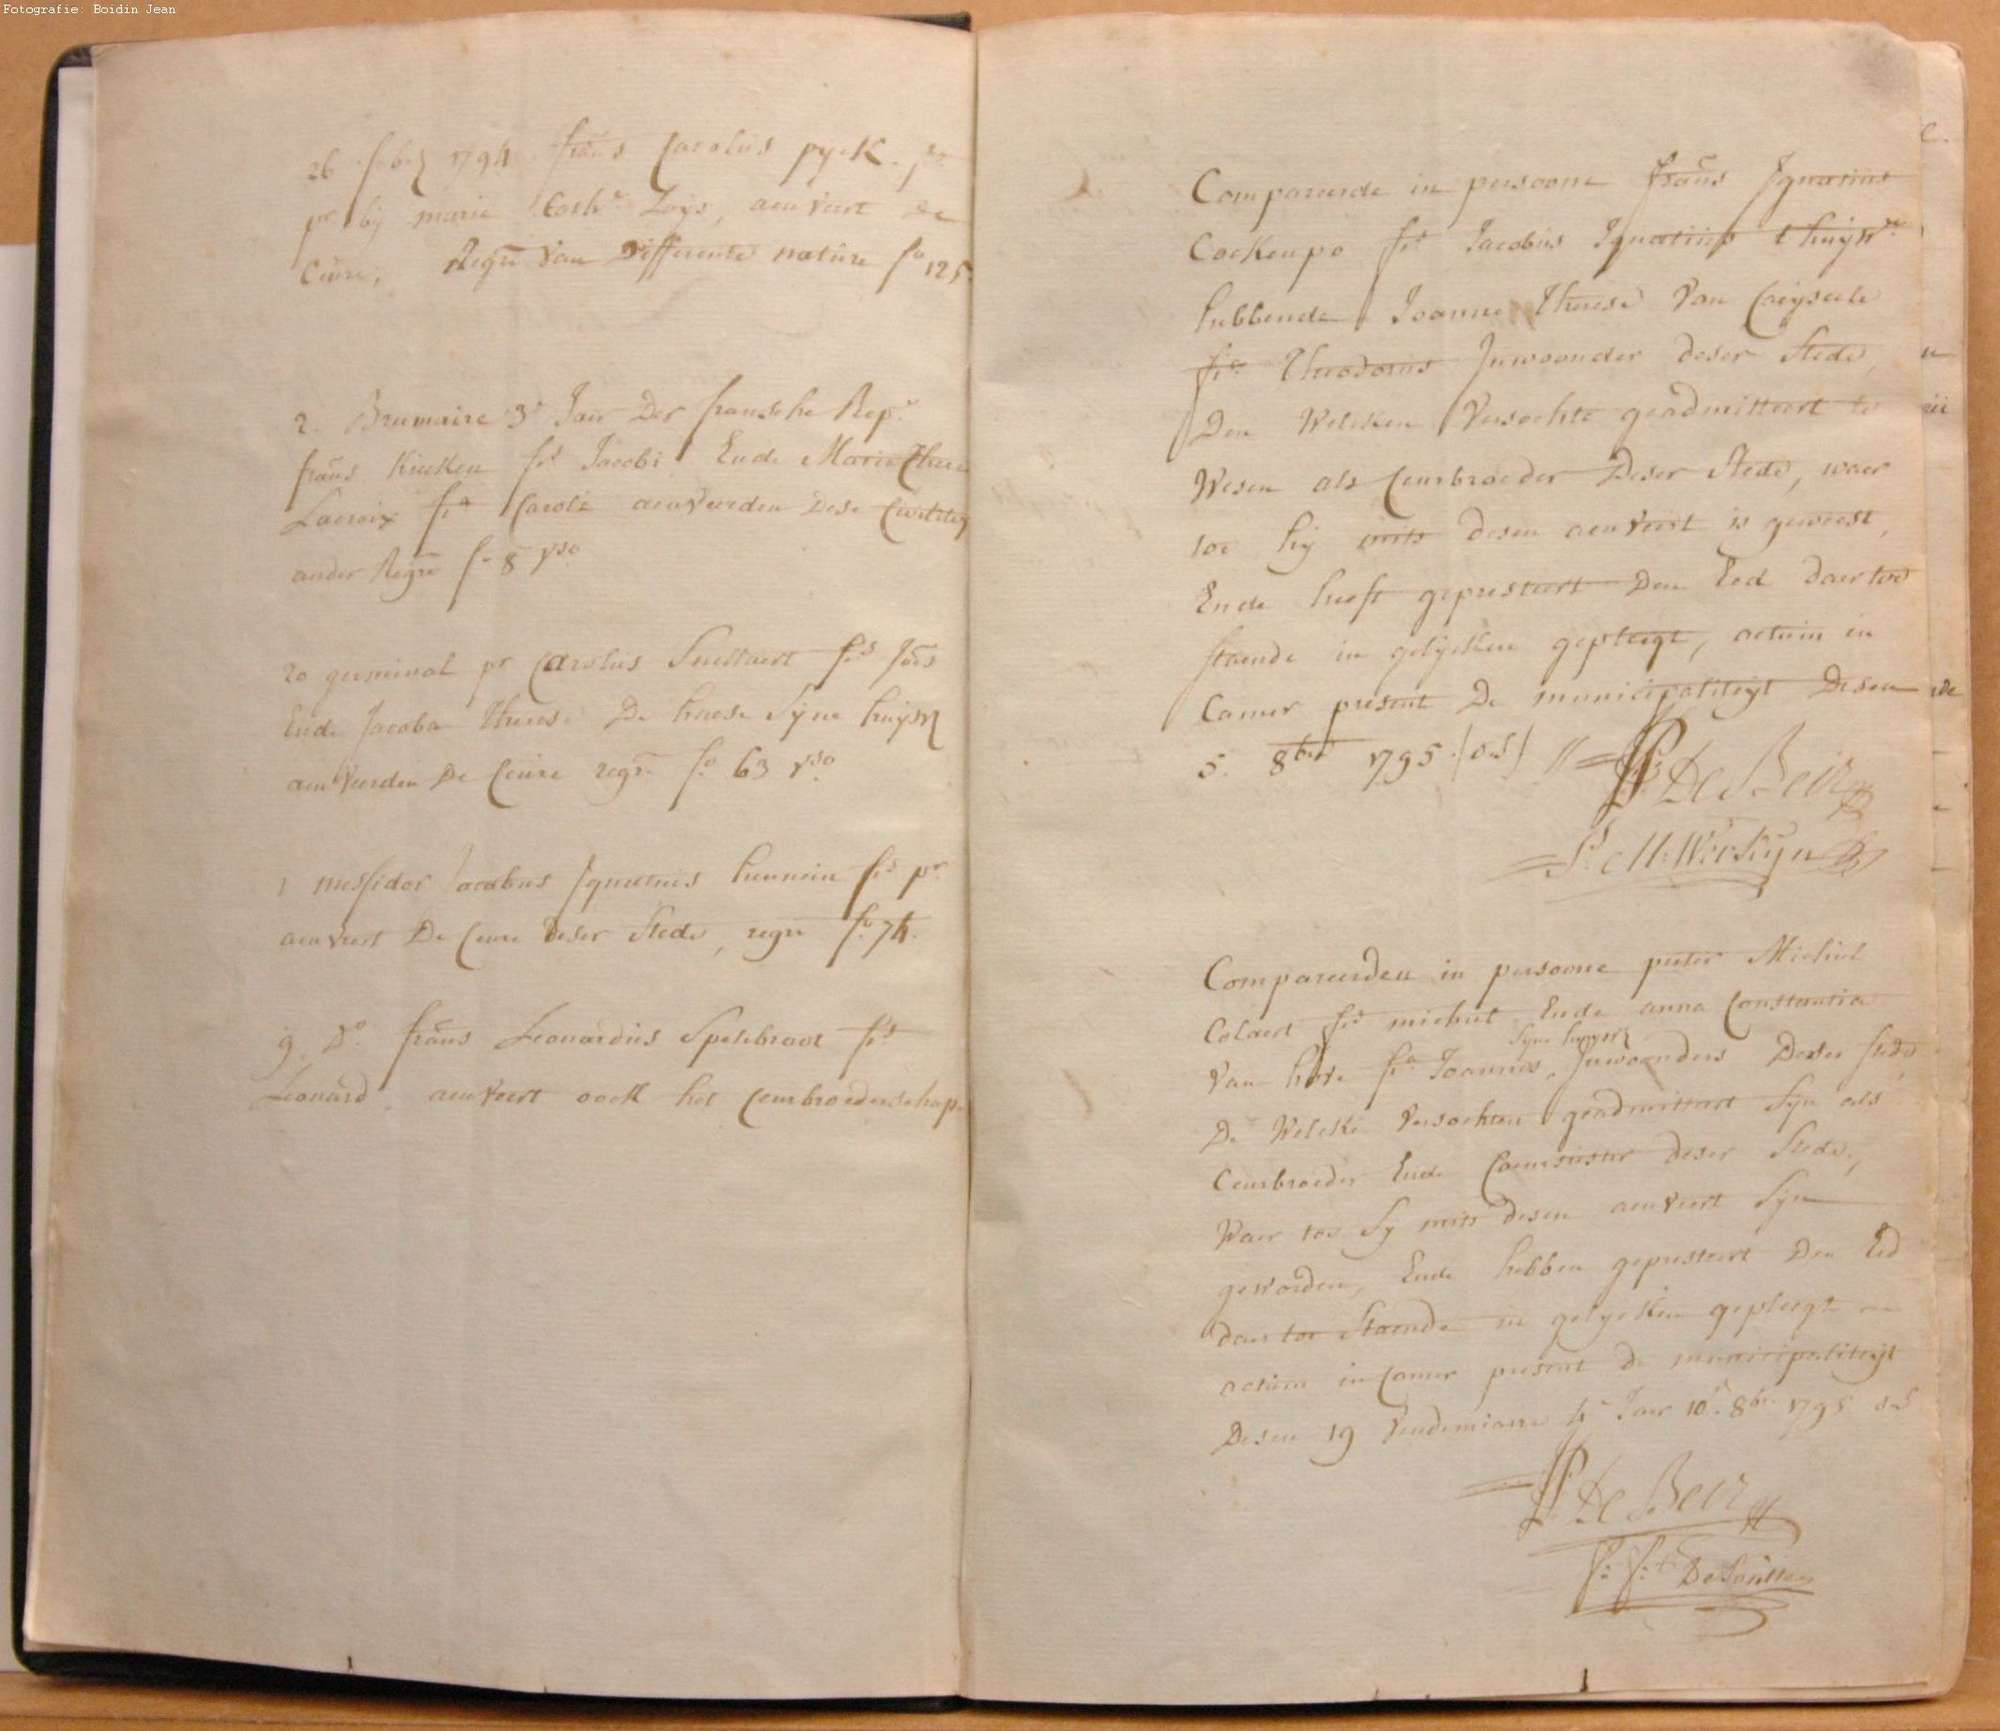 Fotografie: Boidin Jean
26 feb 1794 frans Carolus pyck. fs
pr bij marie Cath.e Loijs, aenveert de
Ceure, Regre van differente nature fo 125
2. Brumaire 3e Jaer Der fransche Rep.e
frans Kieken fs Jacobi Ende Marie
Lacroix fa Caroli aenveerden dese
ander Regre fo 8 vso
20 germinal pr Carolus Snellaert fs Joes
Ende Jacoba Therese De haese Syne huijsv
aenveerden De Ceure regre fo 63 vso
1 messidor Jacobus Ignatius hennein fs pr
aenveert De Ceure deser Stede, regre fo 74.
9 Do. frans Leonardus Spelebroot fs
Leonard. aenveert oock het Ceurbroederschap
Compareerde in persoone frans Ignatius
Cockenpo fs Jacobus Ignatius t huijsve
hebbende Joanne Therese Van Caeyseele
fa Theodorus Inwoonder deser Stede,
Den Welcken Versochte geadmitteert te
Wesen als Ceurbroeder Deser Stede, waer
toe hij mits desen aenveert is geweest,
Ende heeft gepresteert Den Eed daertoe
staende in gelycken gepleegt, actum in
Camer present De municipaliteijt Desen
5. 8bre 1795 (o.s)
P De Beir
Compareerden in persoone pieter Michiel
Colaert fs michiel Ende anna Constantia
Syne huysv
Van hove fa Joannes, Inwoonders Deser stede
De Welcke Versochten geadmitteert Syn als
Ceurbroeder Ende Ceursuster deser Stede,
Waer toe Sy mits desen aenveert Syn
geworden, Ende hebben gepresteert Den Eed
daer toe Staende in gelycken gepleegt
actum in Camer present de municipaliteijt
Desen 19 Vendemiaire 4e Jaer 10 8bre 1795 o.s
P De Beir